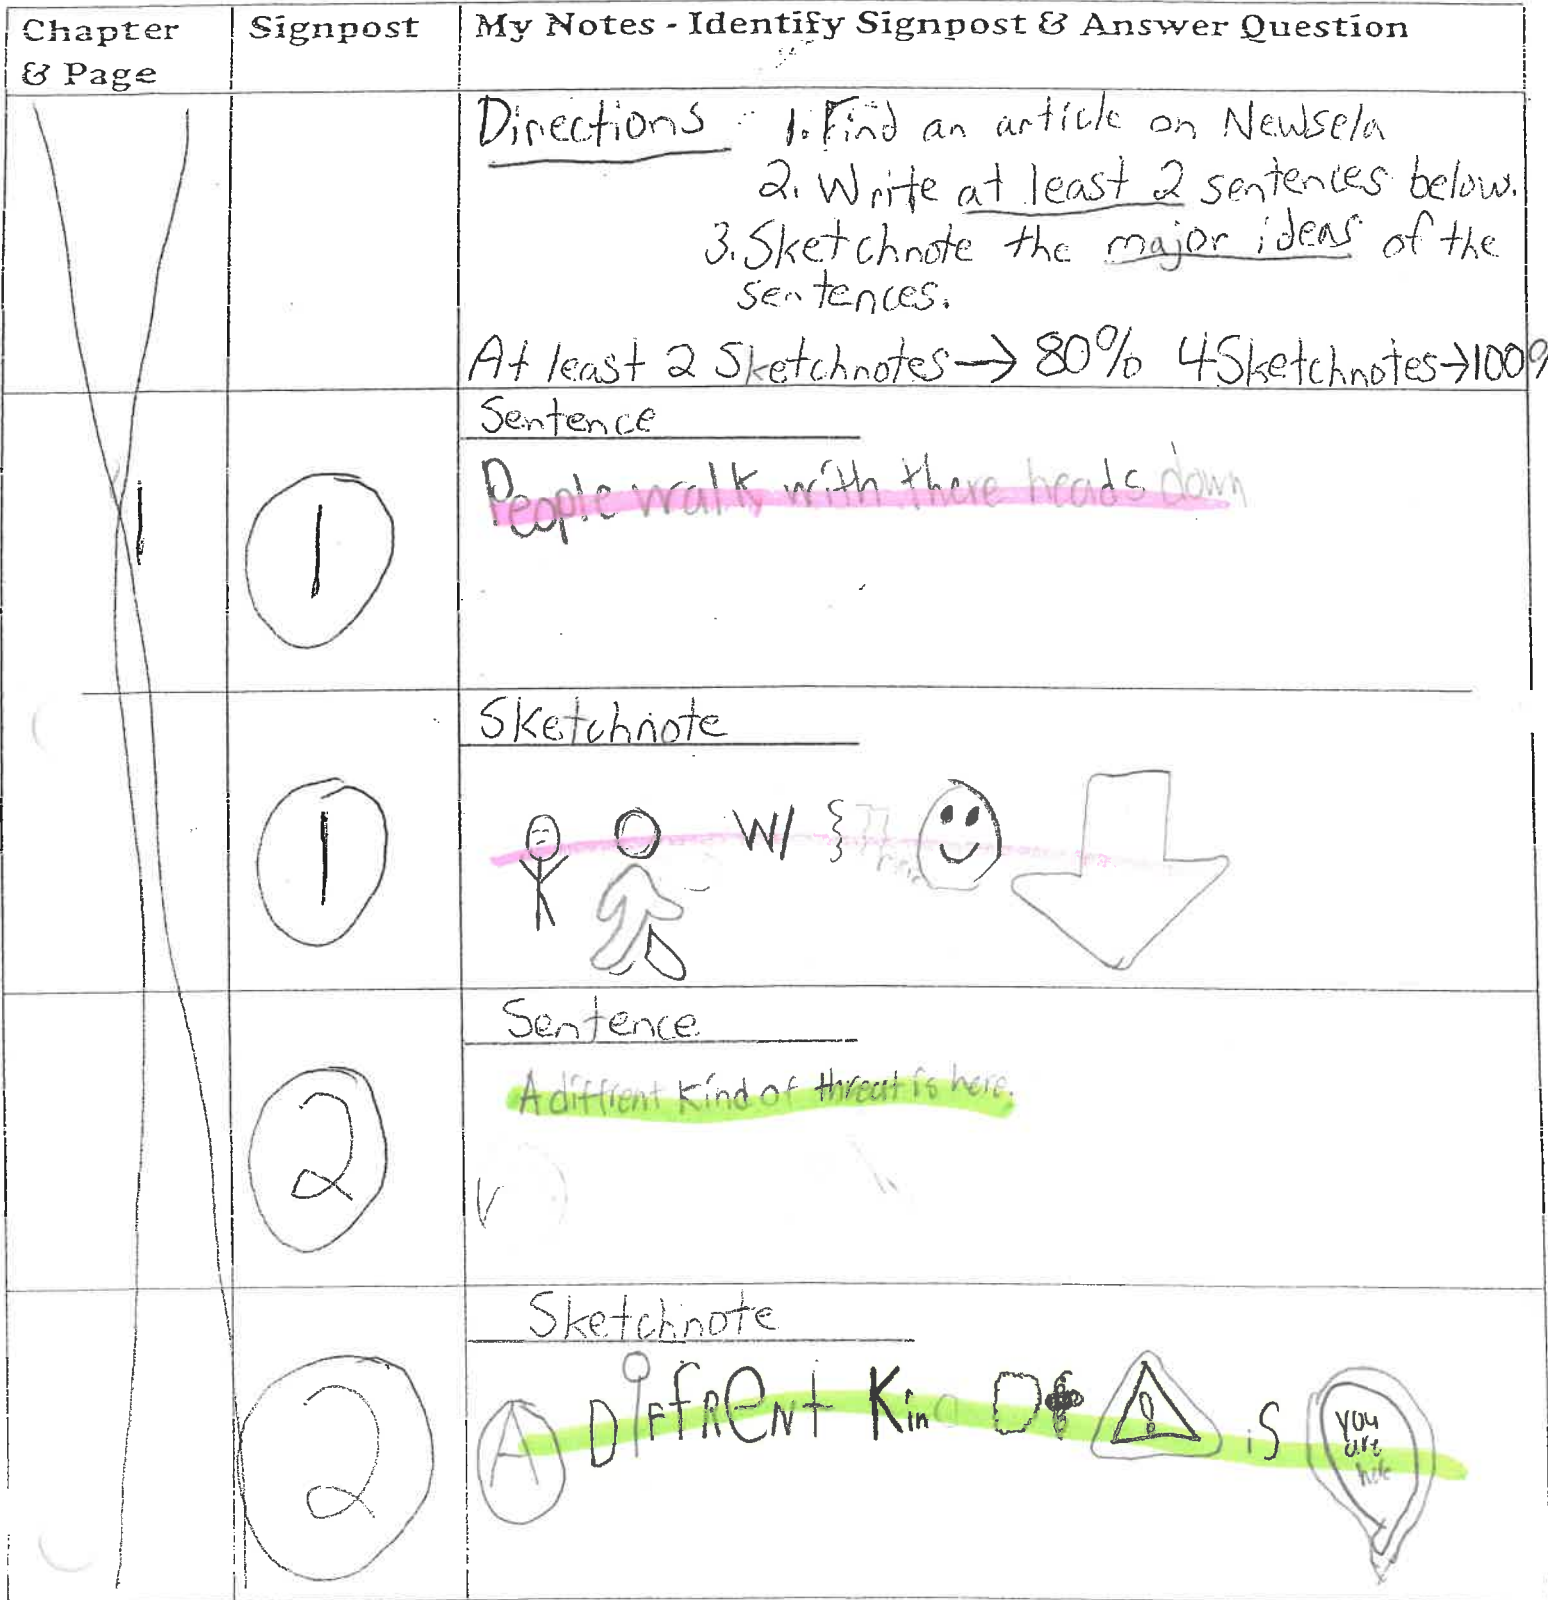 Chapter & Page
Signpost
My Notes - Identify Signpost & Answer Question
Directions 1. Find an article on Newsela
2. Write at least 2 sentences below.
3. Sketchnote the major ideas of the
sentences.
At least 2 Sketchnotes → 80% 4 Sketchnotes → 100%
Sentence
1
1
People walk with there heads down
Sketchnote
1
W/
Sentence
2
A diffrent kind of threat is here.
Sketchnote
2
A DiffRENt Kind Of is you are here